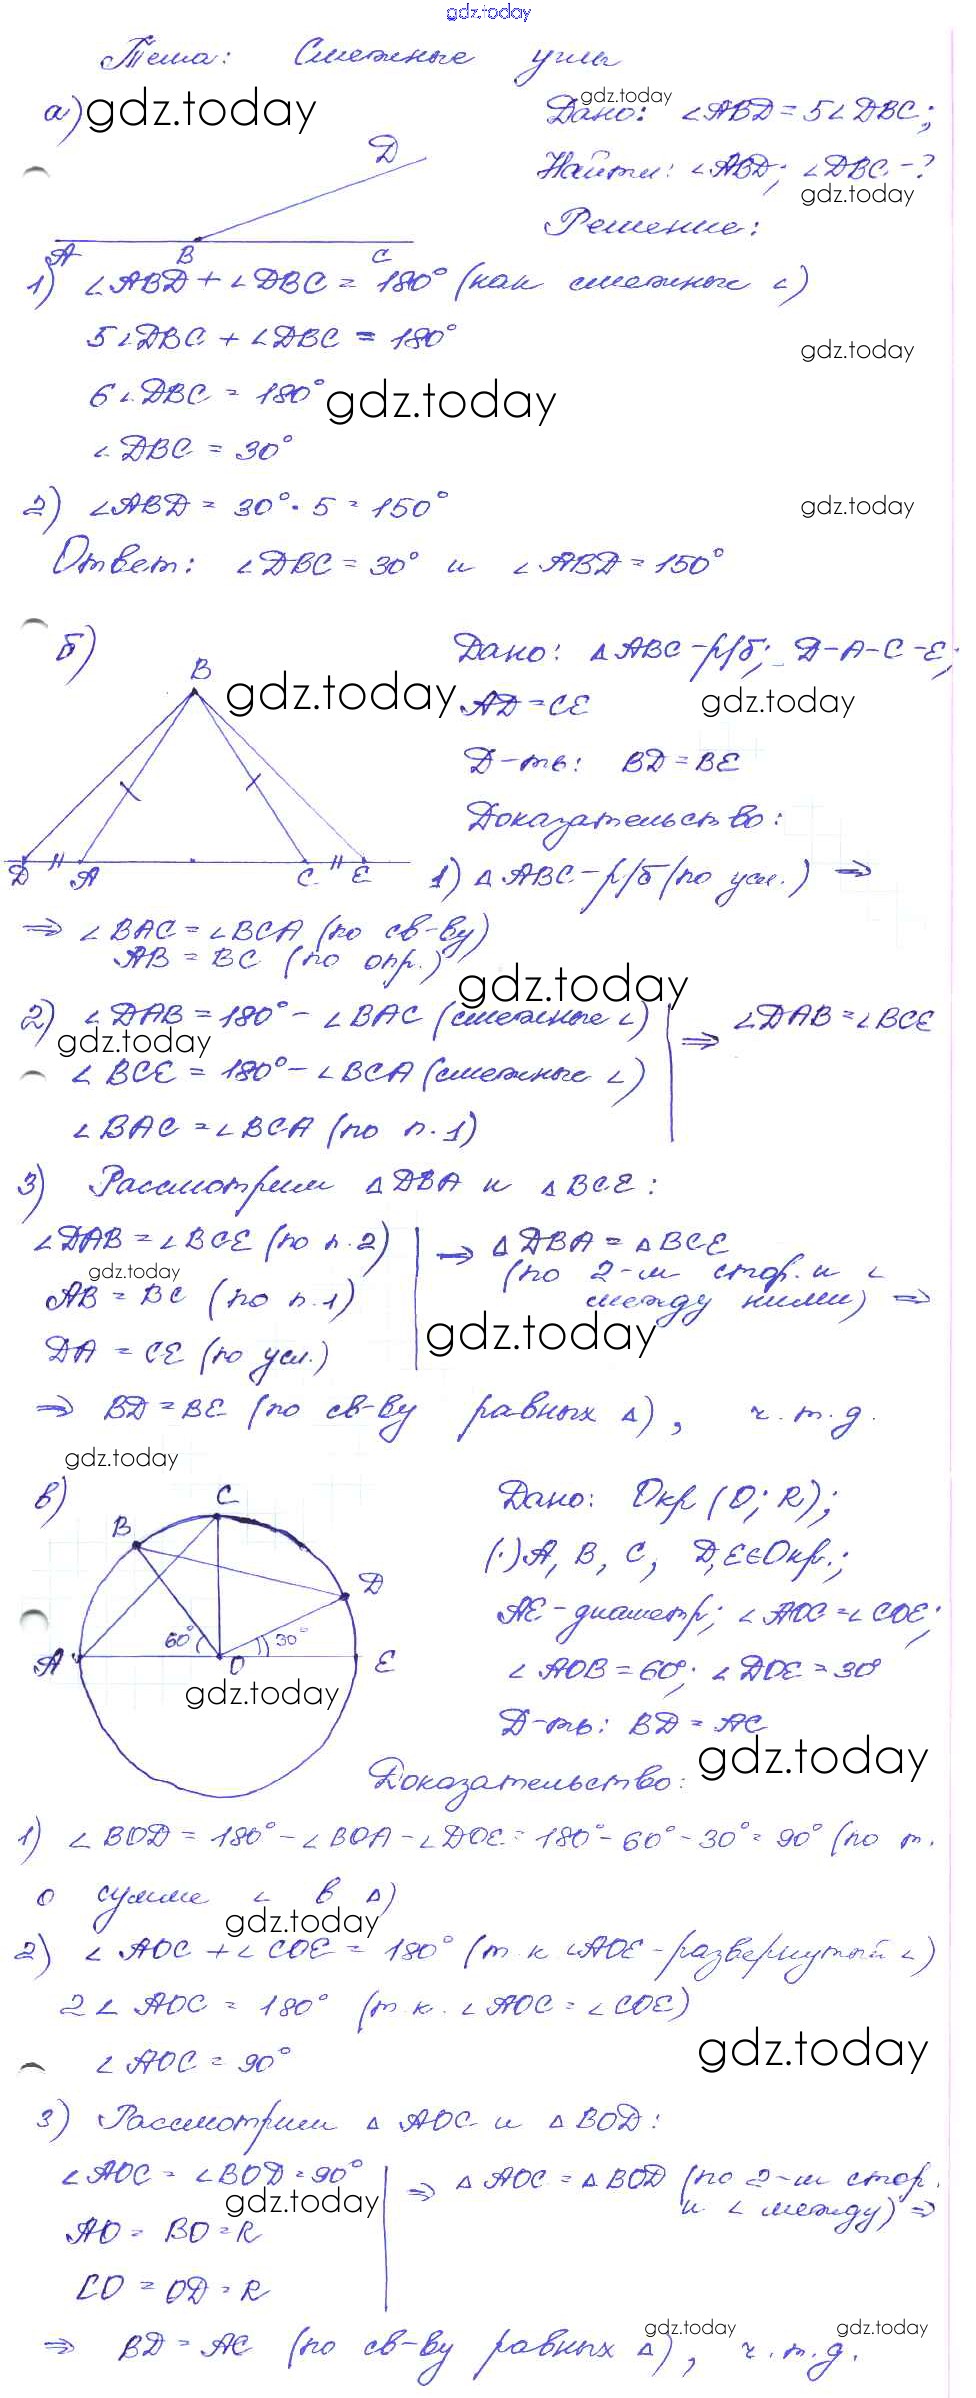 gdz.today
Тема: Смежные углы
а) gdz.today
gdz.today
Дано: ∠ABD = 5∠DBC;
D
Найти: ∠ABD; ∠DBC - ?
gdz.today
Решение:
A B C
1) ∠ABD + ∠DBC = 180° (как смежные ∠)
5∠DBC + ∠DBC = 180°
gdz.today
6∠DBC = 180°
gdz.today
∠DBC = 30°
2) ∠ABD = 30° · 5 = 150°
gdz.today
Ответ: ∠DBC = 30° и ∠ABD = 150°
б)
Дано: △ABC - р/б; D-A-C-E;
B
gdz.today
AD = CE
gdz.today
Д-ть: BD = BE
Доказательство:
D A C E
1) △ABC - р/б (по усл.) ⇒
⇒ ∠BAC = ∠BCA (по св-ву)
AB = BC (по опр.)
gdz.today
2) ∠DAB = 180° - ∠BAC (смежные ∠)
⇒ ∠DAB = ∠BCE
gdz.today
∠BCE = 180° - ∠BCA (смежные ∠)
∠BAC = ∠BCA (по п.1)
3) Рассмотрим △DBA и △BCE:
∠DAB = ∠BCE (по п.2)
⇒ △DBA = △BCE
gdz.today
(по 2-м стор. и ∠
AB = BC (по п.1)
между ними) ⇒
gdz.today
DA = CE (по усл.)
⇒ BD = BE (по св-ву равных △), ч.т.д.
gdz.today
в)
C
Дано: Окр (O; R);
B
(·) A, B, C, D, E ∈ Окр.;
D
AE - диаметр; ∠AOC = ∠COE;
60° 30°
A O E
∠AOB = 60°; ∠DOE = 30°
gdz.today
Д-ть: BD = AC
gdz.today
Доказательство:
1) ∠BOD = 180° - ∠BOA - ∠DOE = 180° - 60° - 30° = 90° (по т.
о сумме ∠ в △)
gdz.today
2) ∠AOC + ∠COE = 180° (т.к ∠AOE - развернутый ∠)
2∠AOC = 180° (т.к. ∠AOC = ∠COE)
gdz.today
∠AOC = 90°
3) Рассмотрим △AOC и △BOD:
∠AOC = ∠BOD = 90°
⇒ △AOC = △BOD (по 2-м стор.
gdz.today
и ∠ между) ⇒
AO = BO = R
CO = OD = R
gdz.today gdz.today
⇒ BD = AC (по св-ву равных △), ч.т.д.